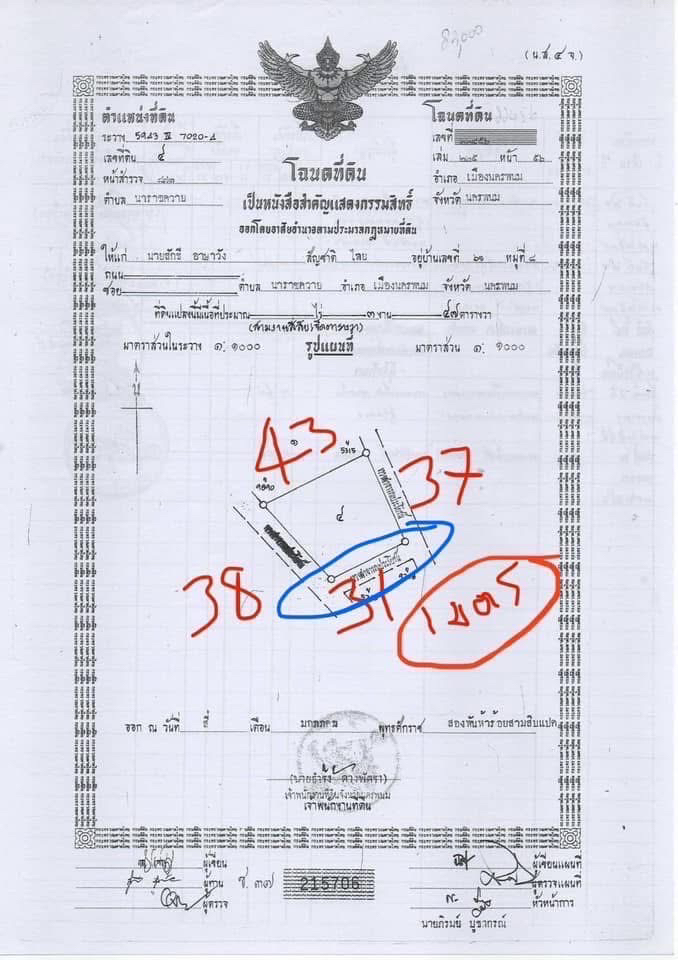 (น.ส.๔ จ.)
ตำแหน่งที่ดิน
ระวาง 5943 III 7020-4
เลขที่ดิน ๔
หน้าสำรวจ
ตำบล นาราชควาย
โฉนดที่ดิน
เลขที่
เล่ม ๒๑๕ หน้า ๕๖
อำเภอ เมืองนครพนม
จังหวัด นครพนม
โฉนดที่ดิน
เป็นหนังสือสำคัญแสดงกรรมสิทธิ์
ออกโดยอาศัยอำนาจตามประมวลกฎหมายที่ดิน
ให้แก่ นายศักชี อาษาวัง สัญชาติ ไทย อยู่บ้านเลขที่ ๖๑ หมู่ที่ ๘
ถนน
ซอย ตำบล นาราชควาย อำเภอ เมืองนครพนม จังหวัด นครพนม
ที่ดินแปลงนี้มีเนื้อที่ประมาณ ไร่ ๓ งาน ๔๗ ตารางวา
(สามงานสี่สิบเจ็ดตารางวา)
มาตราส่วนในระวาง ๑: ๑๐๐๐ รูปแผนที่ มาตราส่วน ๑: ๑๐๐๐
น
43
๑
37
๔
ทางสาธารณประโยชน์
ทางสาธารณประโยชน์
38
31
เมตร
ออก ณ วันที่ สี่ เดือน มกราคม พุทธศักราช สองพันห้าร้อยสามสิบแปด
เจ้าพนักงานที่ดินจังหวัดนครพนม
เจ้าพนักงานที่ดิน
ผู้เขียน
ผู้ทาน
ผู้ตรวจ
ช. ๓๗
215706
ผู้เขียนแผนที่
ผู้ตรวจแผนที่
หัวหน้าการ
นายภิรมย์ บูชากรณ์